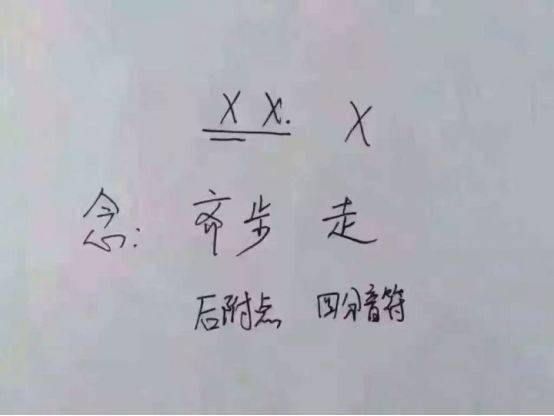 X X. X
念: 齐步 走
后附点 四分音符